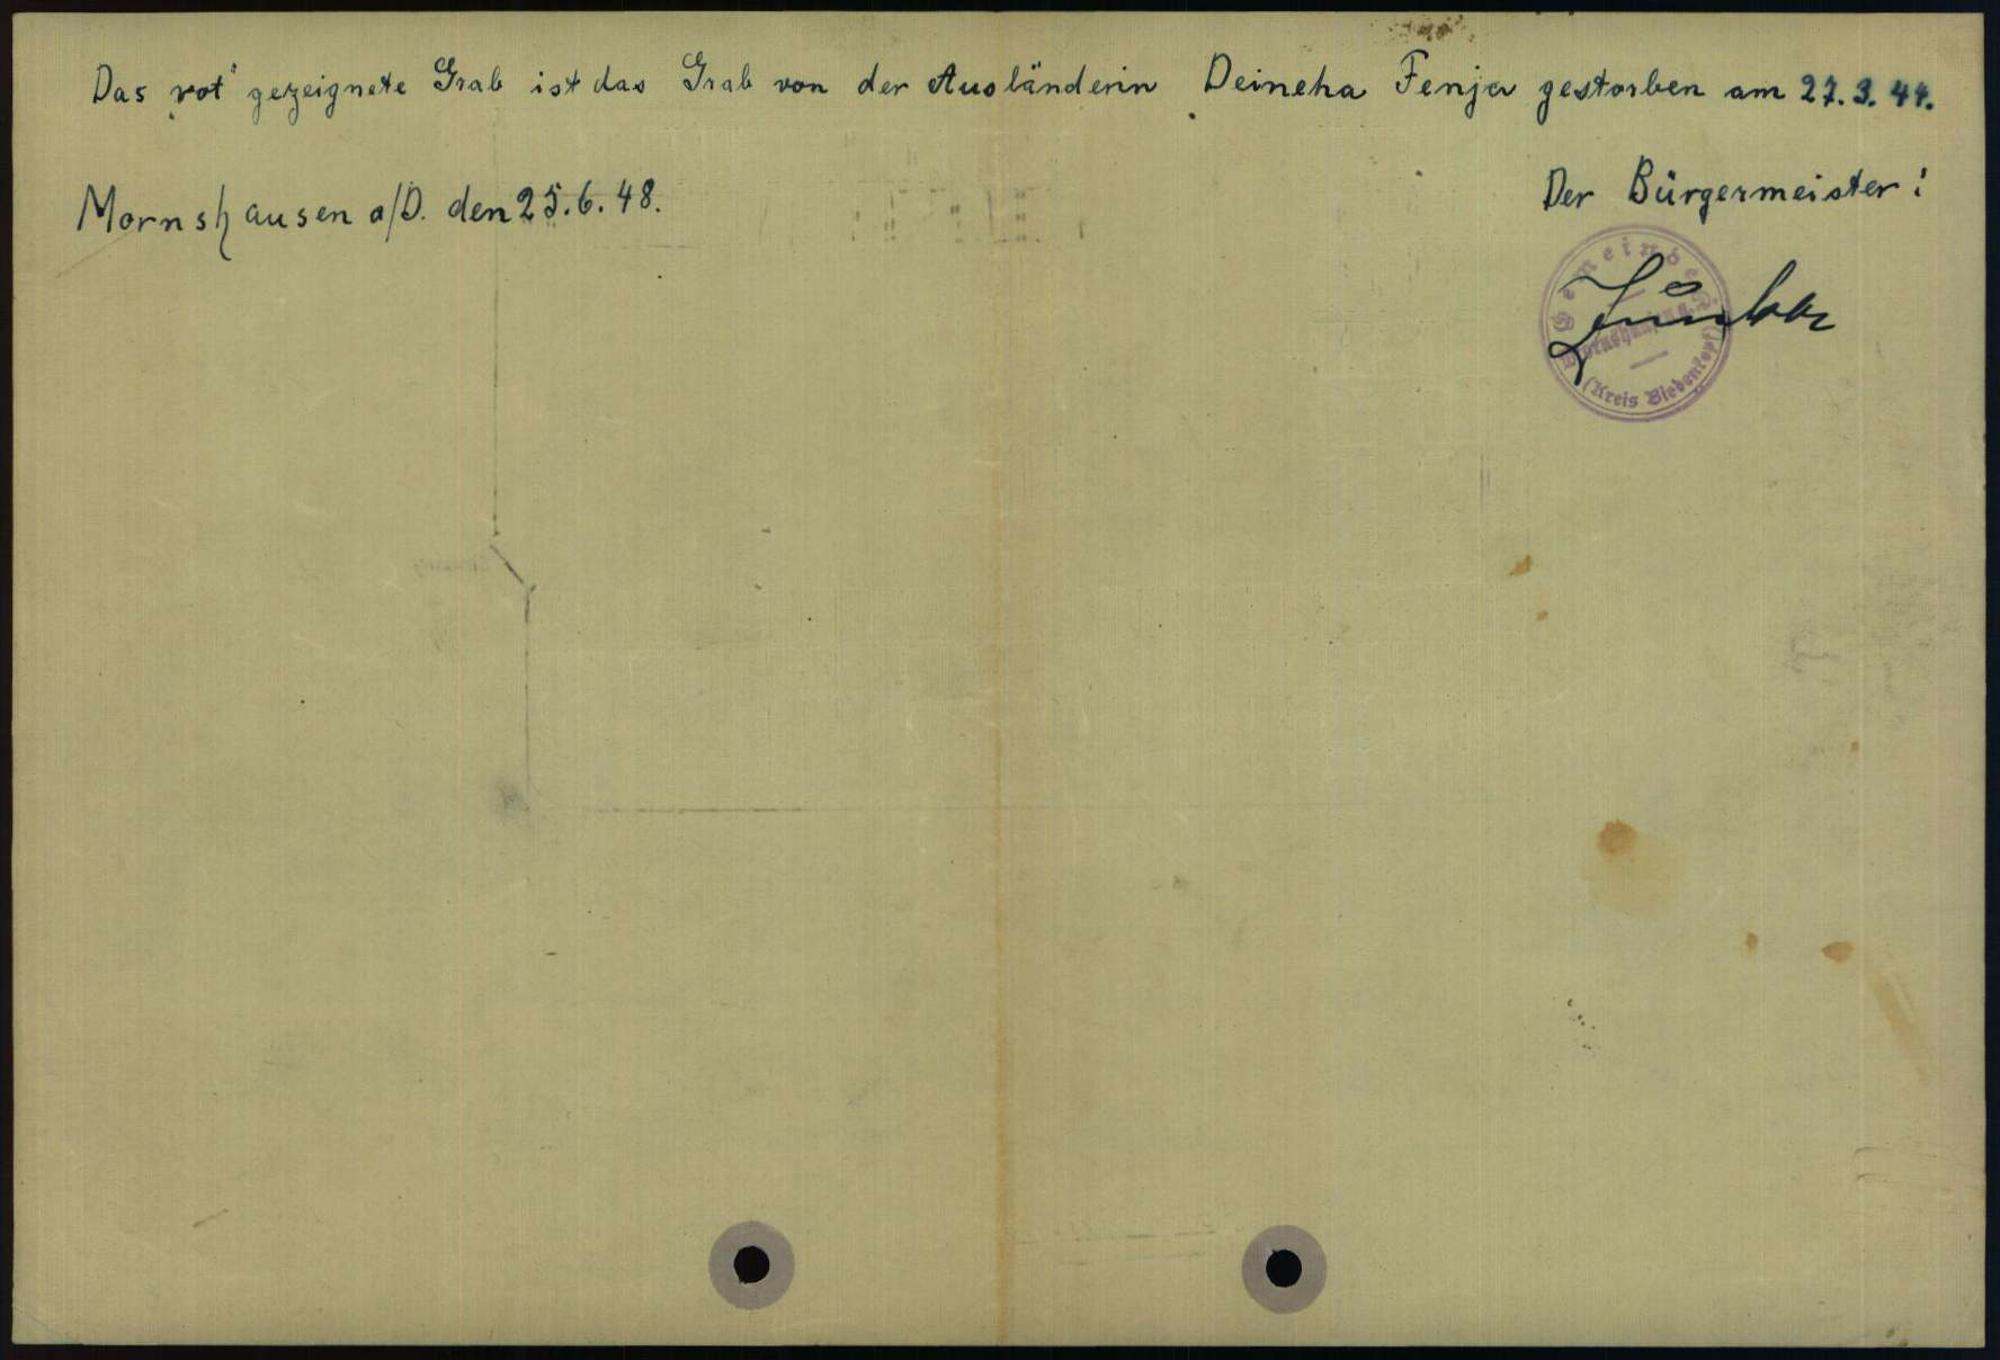 Das „rot" gezeignete Grab ist das Grab von der Ausländerin Deineha Fenja gestorben am 27.3.44.
Mornshausen a/D. den 25.6.48.
Der Bürgermeister:
Gemeinde
Mornshausen
(Kreis Biedenkopf)